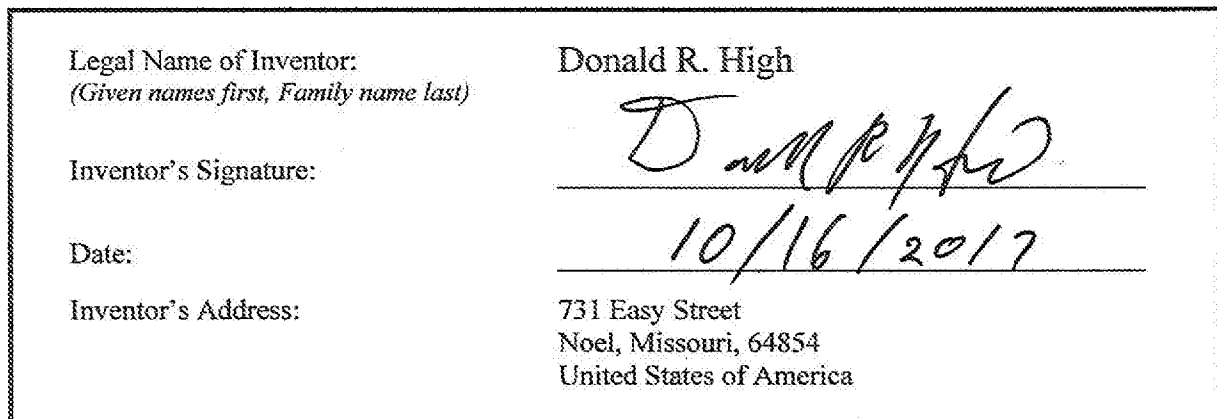 Legal Name of Inventor: Donald R. High
(Given names first, Family name last)
Inventor's Signature: Donald R High
Date: 10/16/2017
Inventor's Address: 731 Easy Street
Noel, Missouri, 64854
United States of America